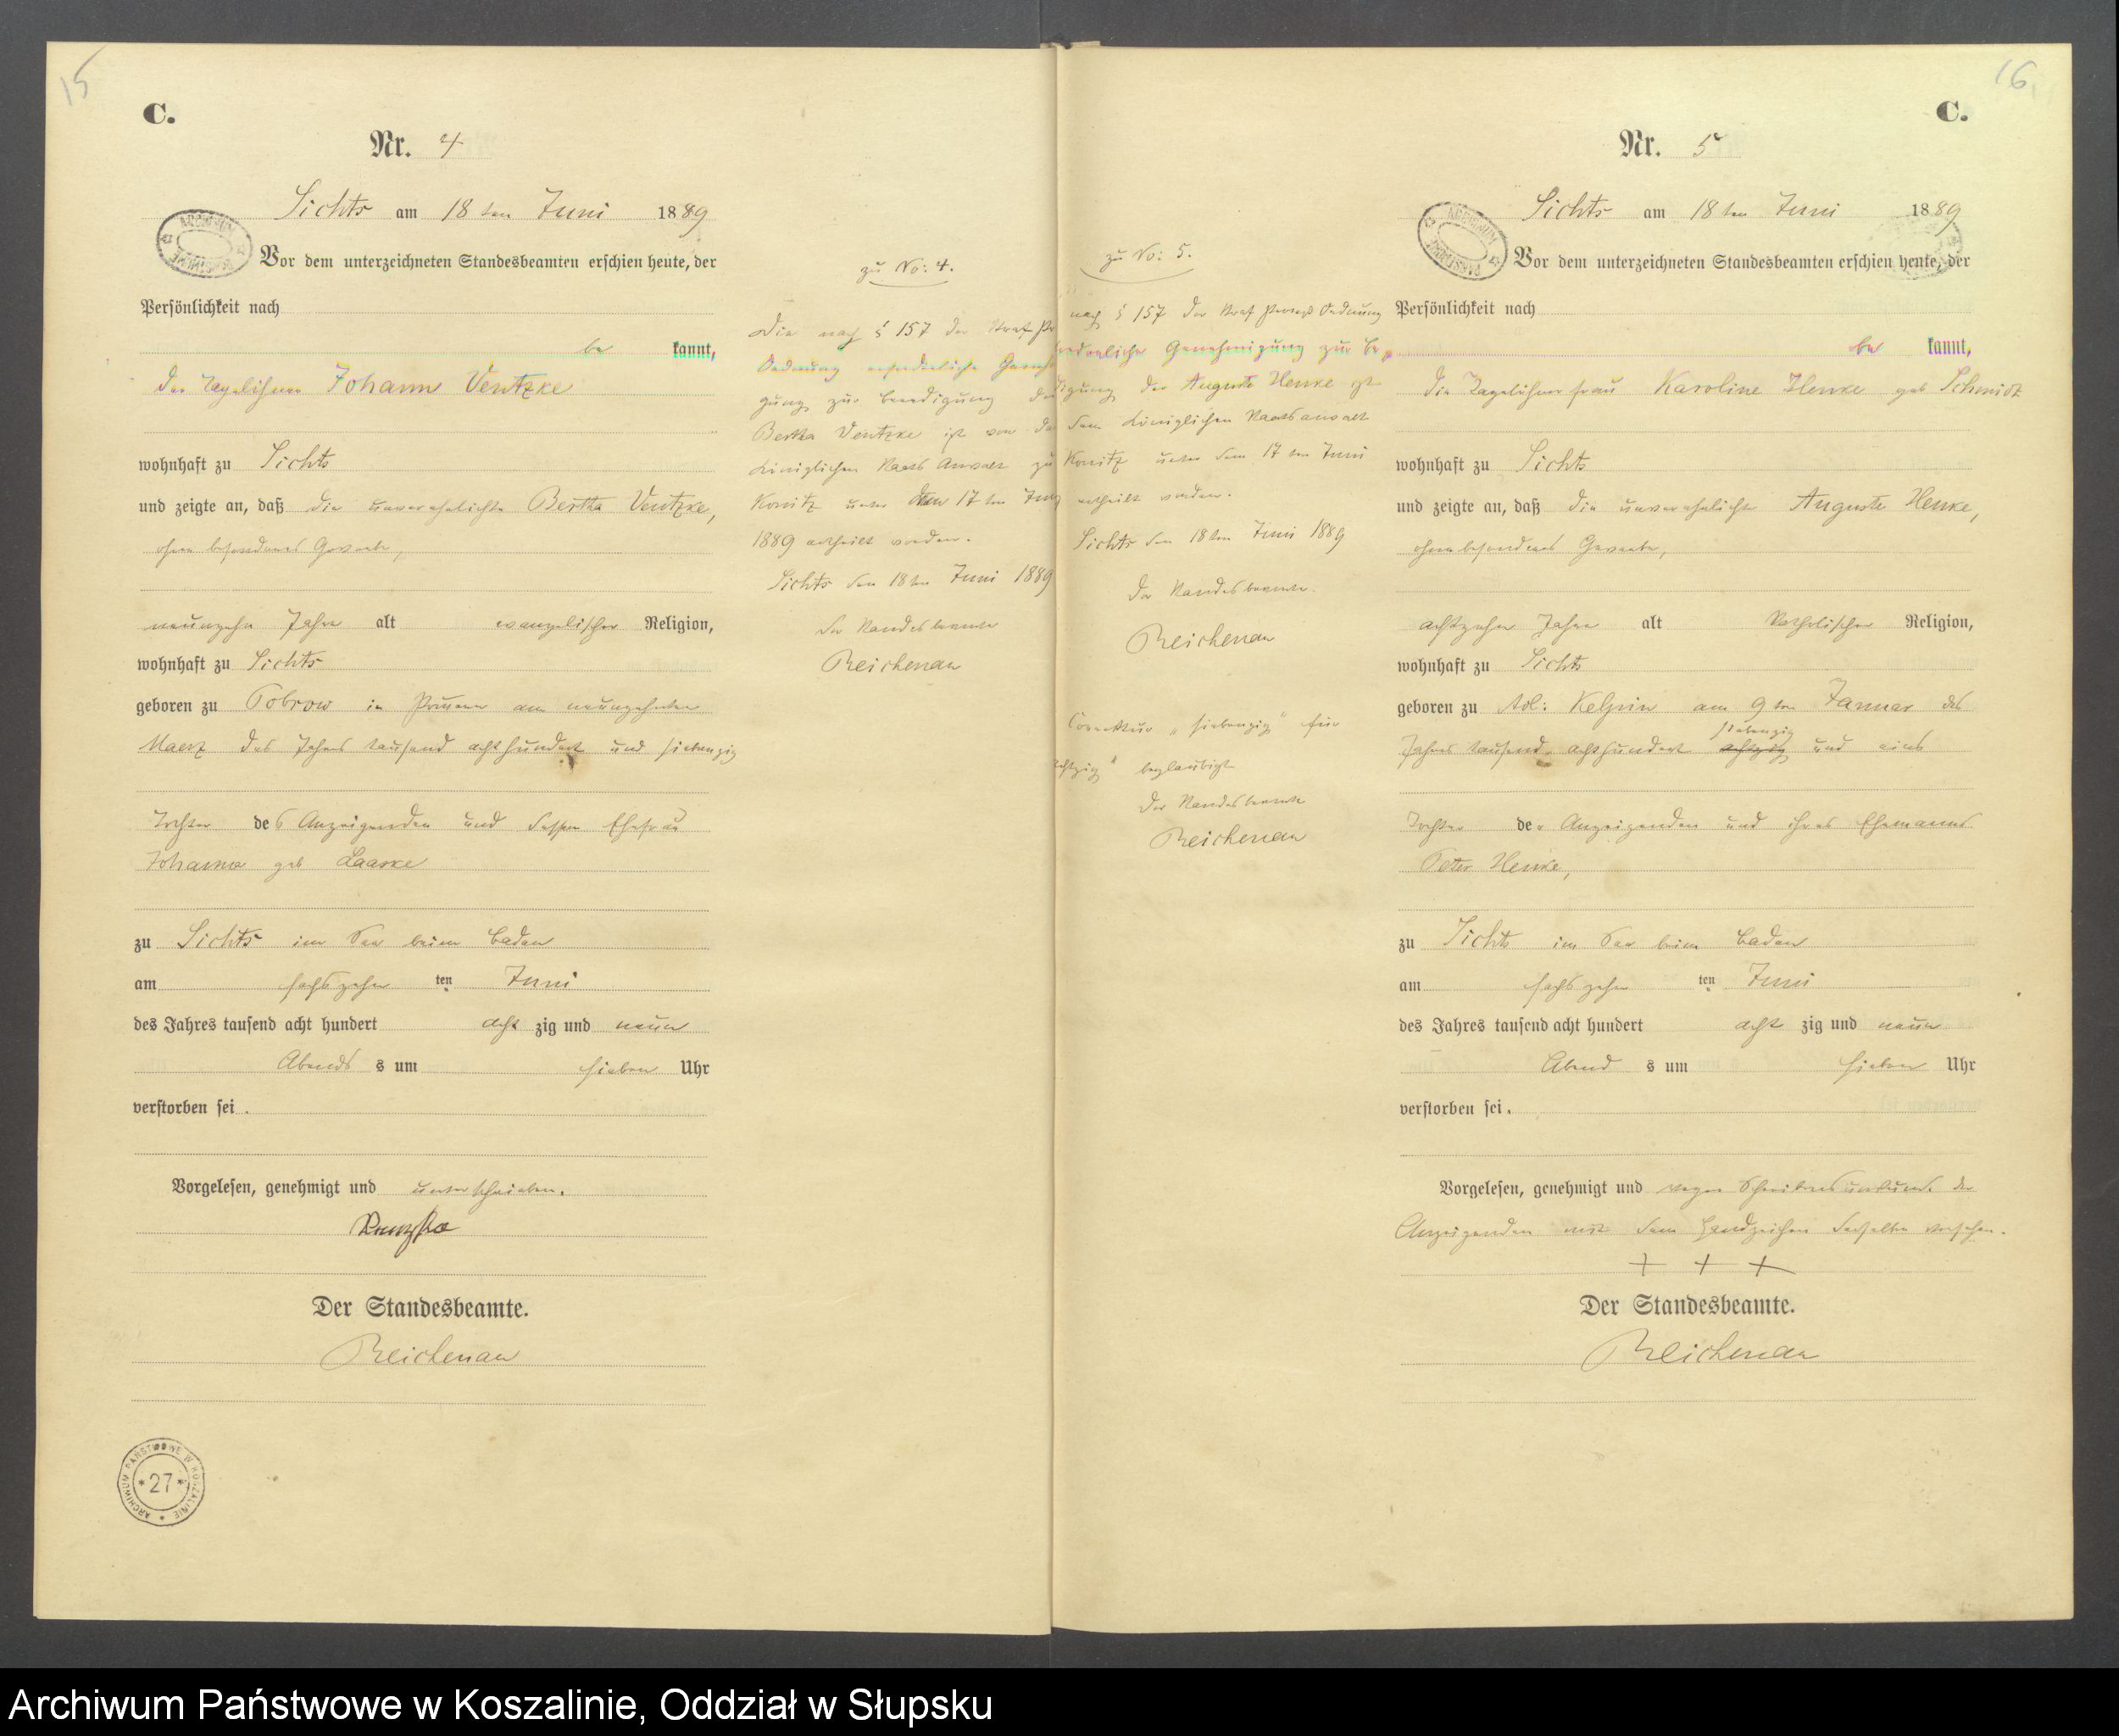 15
C.
Nr. 4
Sichts am 18 ten Juni 1889
Vor dem unterzeichneten Standesbeamten erschien heute, der
Persönlichkeit nach
be kannt,
der Tagelöhner Johann Ventzke
wohnhaft zu Sichts
und zeigte an, daß die unverehelichte Bertha Ventzke,
ohne besonderes Gewerbe,
neunzehn Jahre alt evangelischer Religion,
wohnhaft zu Sichts
geboren zu Pobrow in Pommern am neunzehnten
Maerz des Jahres tausend achthundert und siebenzig
Tochter des Anzeigenden und dessen Ehefrau
Johanna geb Laaske
zu Sichts im See beim Baden
am sechszehn ten Juni
des Jahres tausend acht hundert acht zig und neun
Abends s um sieben Uhr
verstorben sei.
Vorgelesen, genehmigt und unterschrieben.
Der Standesbeamte.
Reichenau
ARCHIWUM PAŃSTWOWE W KOSZALINIE
*27*
zu No: 4.
Die nach § 157 der Straf Pro
Ordnung erforderliche Geneh
gung zur Beerdigung der
Bertha Ventzke ist von der
Königlichen Staats Anwalt zu
Konitz unter dem 17 ten Juni
1889 ertheilt worden.
Sichts den 18 ten Juni 1889
Der Standesbeamte
Reichenau
zu No: 5.
nach § 157 der Straf Prozeß Ordnung
forderliche Genehmigung zur Be
digung der Auguste Henke ist
dem Königlichen Staatsanwalt
Konitz unter dem 17 ten Juni
ertheilt worden.
Sichts den 18 ten Juni 1889
Der Standesbeamte.
Reichenau
Correktur „siebenzig" für
achtzig" beglaubigt
Der Standesbeamte
Reichenau
16
C.
Nr. 5
Sichts am 18 ten Juni 1889
Vor dem unterzeichneten Standesbeamten erschien heute, der
Persönlichkeit nach
be kannt,
die Tagelöhnerfrau Karoline Henke geb Schmidt
wohnhaft zu Sichts
und zeigte an, daß die unverehelichte Auguste Henke,
ohne besonderes Gewerbe,
achtzehn Jahre alt katholischer Religion,
wohnhaft zu Sichts
geboren zu Adl: Kelpin am 9 ten Januar des
siebenzig
Jahres tausend achthundert achtzig und eins
Tochter der Anzeigenden und ihres Ehemanns
Peter Henke,
zu Sichts im See beim Baden
am sechszehn ten Juni
des Jahres tausend acht hundert acht zig und neun
Abend s um sieben Uhr
verstorben sei.
Vorgelesen, genehmigt und wegen Schreibensunkunde der
Anzeigenden mit dem Handzeichen derselben versehen.
+ + +
Der Standesbeamte.
Reichenau
Archiwum Państwowe w Koszalinie, Oddział w Słupsku